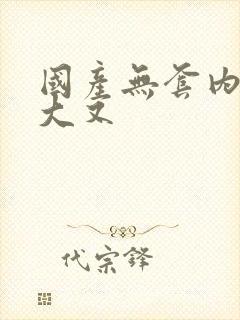 國產無套內
大叉
代宗鋒